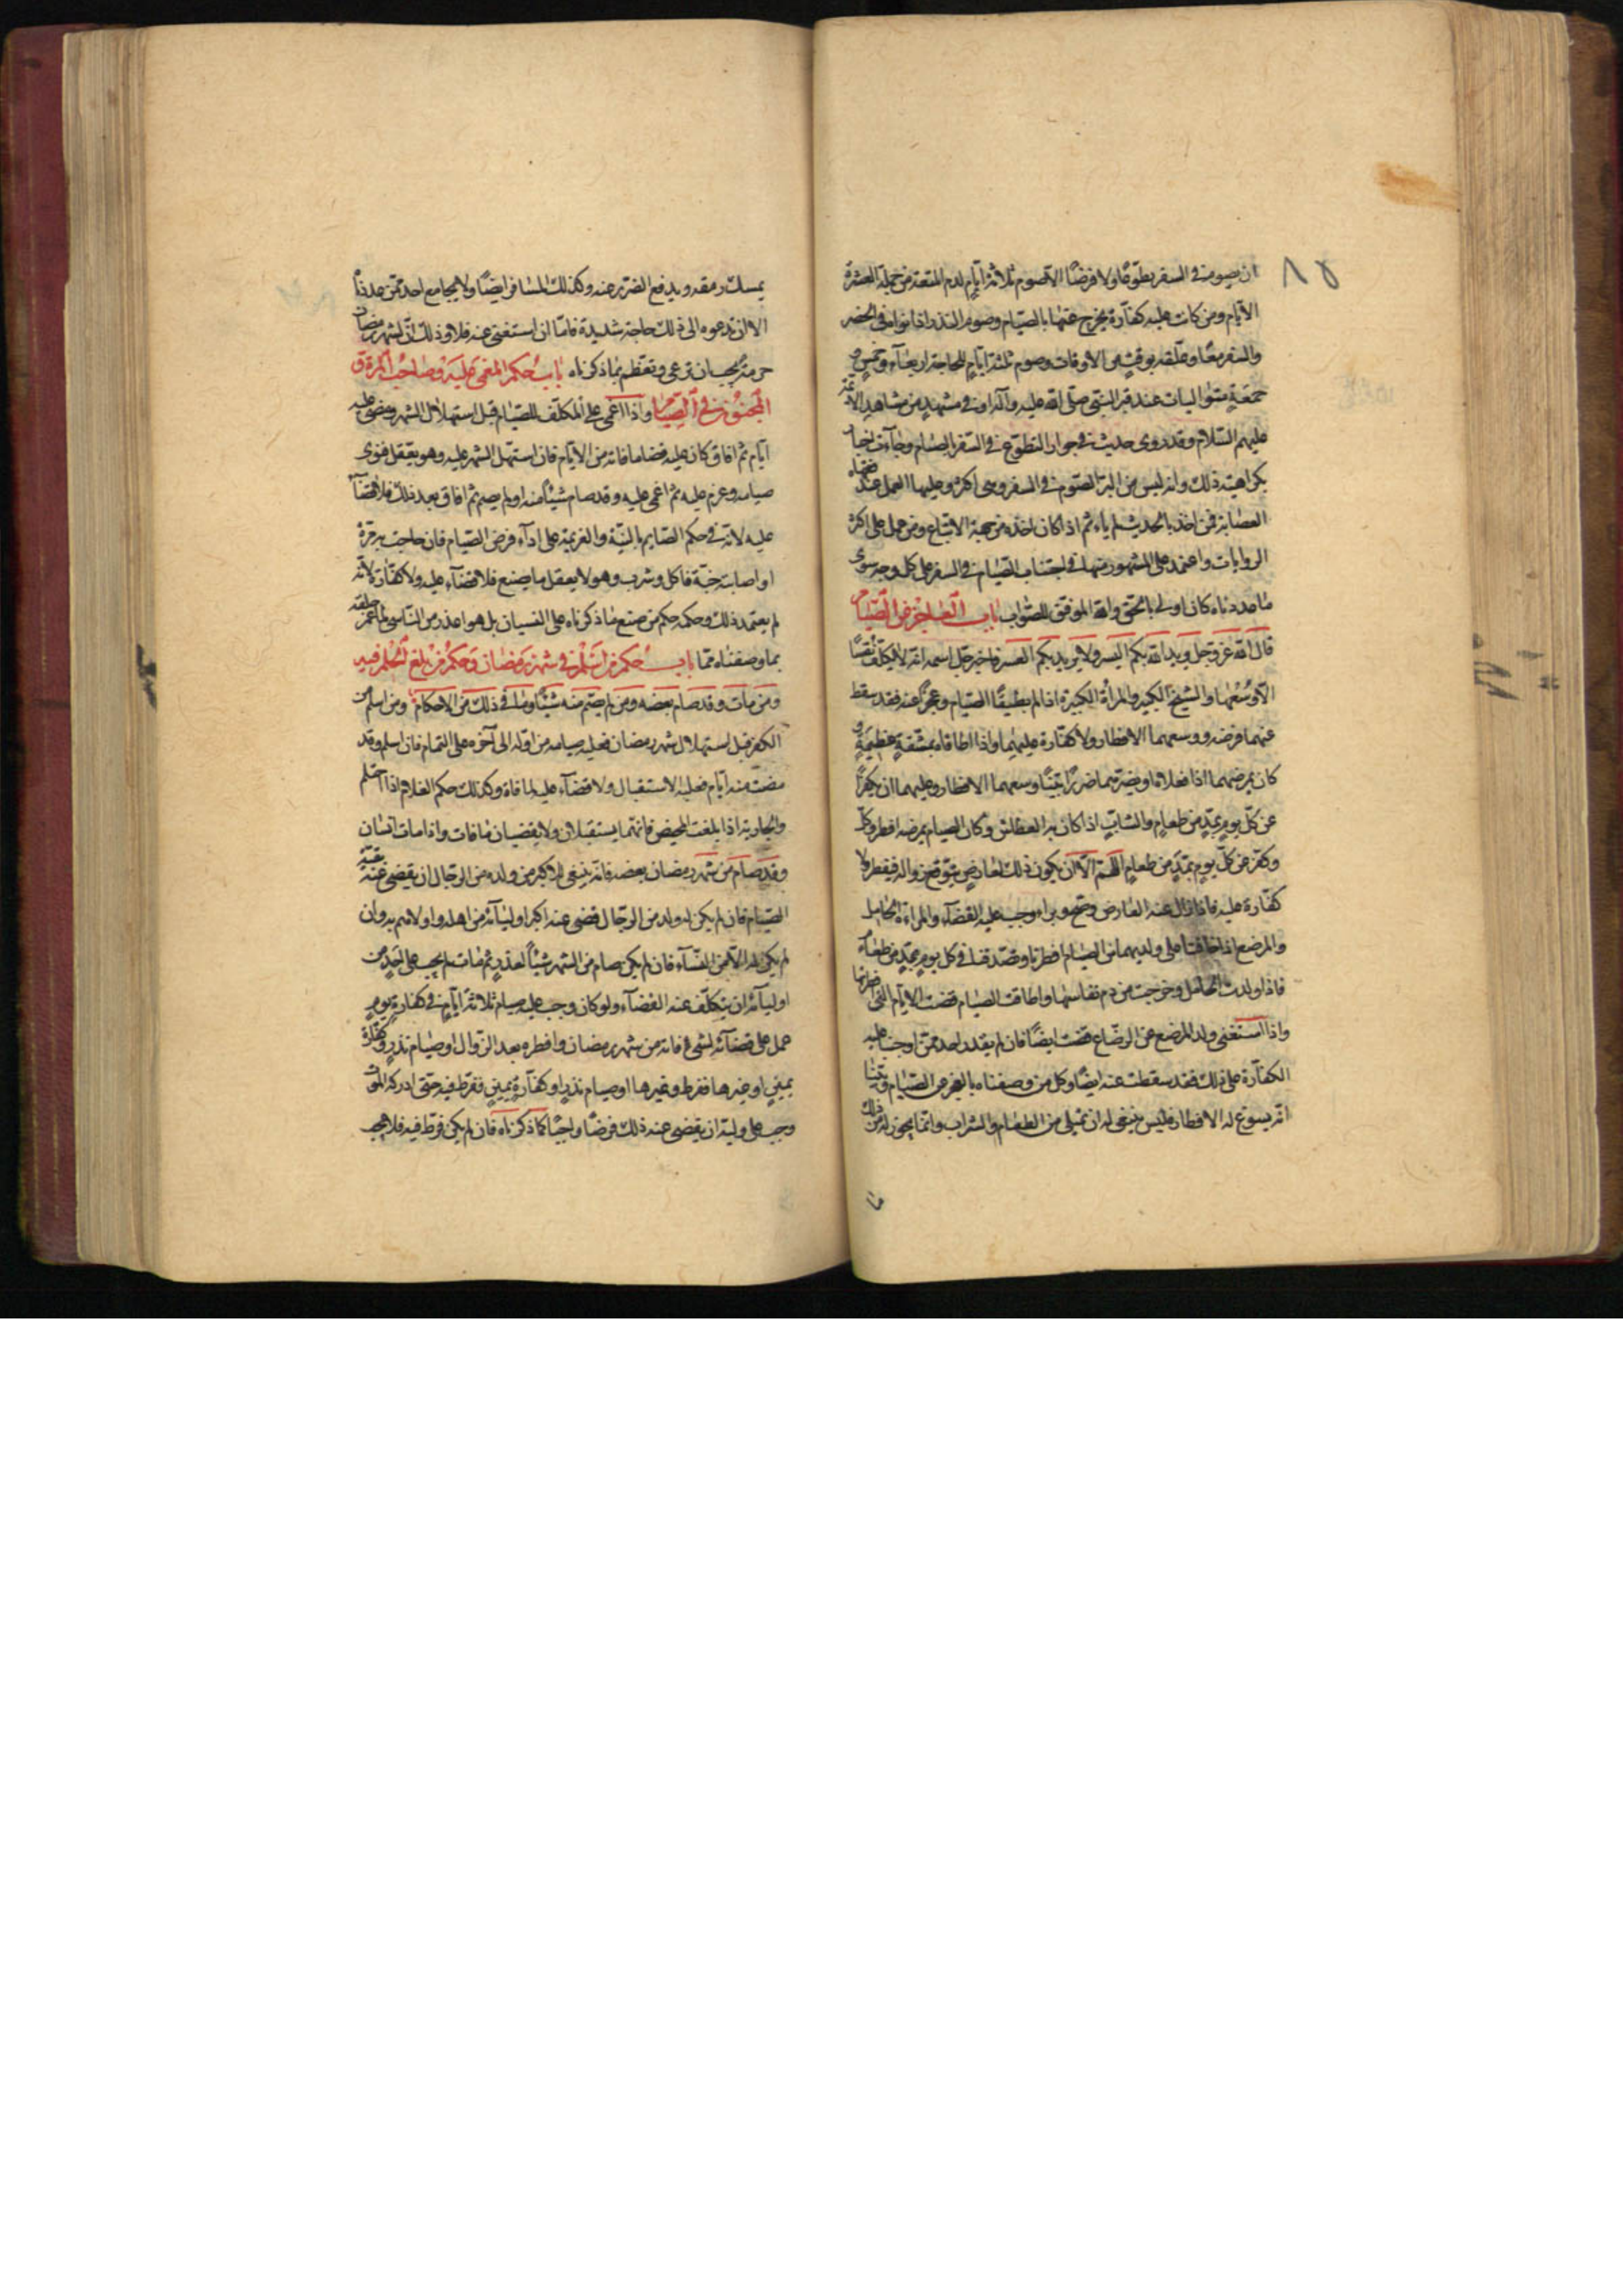 ٨٥
ان يصوم في السفر تطوعًا ولا فرضًا الا صوم ثلاثة ايّام لدم المتعة من جملة العشرة
الايّام ومن كانت عليه كفارة يخرج عنها بالصّيام وصوم النذر اذا نواه في الحضر
والسفر معًا وعلّقه بوقت من الاوقات وصوم ثلثة ايّام للحاجة اربعاء وخميس و
جمعة متواليات عند قبر النبيّ صلّى الله عليه وآله او في مشهد من مشاهد الائمّة
عليهم السّلام وقد روى حديث في جواز التطوّع في السّفر بالصّيام وجاءت اخبار
بكراهيّة ذلك وانه ليس من البرّ الصّوم في السفر وهى اكثر وعليها العمل عند فقهاء
العصابة فمن اخذ بالحديث لم ياثم اذا كان اخذه من جهة الاتّباع ومن عمل على اكثر
الروايات واعتمد على المشهور منها في اجتناب الصّيام في السفر على كل وجه سوى
ما عددناه كان اولى بالحقّ والله الموفّق للصّواب باب العاجز عن الصّيام
قال الله عزّ وجلّ يريد الله بكم اليسر ولا يريد بكم العسر فاخبر جلّ اسمه انّه لا يكلّف نفسًا
الّا وُسْعَها والشيخ الكبير والمرأة الكبيرة اذا لم يطيقا الصّيام وعجزا عنه فقد سقط
عنهما فرضه ووسعهما الافطار ولا كفّارة عليهما واذا اطاقاه بمشقّة عظيمة و
كان يمرضهما اذا فعلاه او يضرّ بهما ضررًا بيّنًا وسعهما الافطار وعليهما ان يكفّرا
عن كلّ يوم بمدّ من طعام والشابّ اذا كان به العطاش وكان الصيام يمرضه افطر وكلّ
وكفّر عن كلّ يوم بمدّ من طعام اللهمّ الّا ان يكون ذلك لعارض يتوقّع زواله فيفطر ولا
كفّارة عليه فاذا زال عنه العارض وصحّ وبراء وجب عليه القضاء والمراءة الحامل
والمرضع اذا خافتا على ولديهما من الصّيام افطرتا وتصدّقتا في كل يوم بمدّ من طعام
فاذا ولدت الحامل وخرجت من دم نفاسها واطاقت الصّيام قضت الايّام التي افطرتها
واذا استغنى ولد المرضع عن الرضاع قضت ايضًا فان لم يقدر احد ممّن اوجبنا عليه
الكفّارة على ذلك فقد سقطت عنه ايضًا وكل من وصفناه بالعجز عن الصّيام وبيّنّا
انّه يسوغ له الافطار فليس ينبغى له ان يتملّى من الطعام والشراب وانّما يجوز له من ذلك
ما
يمسك رمقه ويدفع الضّرر عنه وكذلك المسافر ايضًا ولا يجامع احد ممّن عددناه
الا ان تدعوه الى ذلك حاجة شديدة فامّا ان استغنى عنه فلا وذلك انّ لشهر رمضان
حرمة يجب ان ترعى وتعظّم بما ذكرناه باب حكم المغمى عليه وصاحب المرّة و
المجنون في الصّيام واذا اغمى على المكلّف للصّيام قبل استهلال الشهر ومضى عليه
ايّام ثم افاق كان عليه قضاء ما فاته من الايّام فان استهلّ الشهر عليه وهو يعقل فنوى
صيامه وعزم عليه ثم اغمى عليه وقد صام شيئًا منه او لم يصم ثم افاق بعد ذلك فلا قضاء
عليه لانّه في حكم الصّايم بالنيّة والعزيمة على اداء فرض الصّيام فان هاجت به مرّة
او اصابته جنّة فاكل وشرب وهو لا يعقل ما يصنع فلا قضاء عليه ولا كفّارة لانّه
لم يعتمد ذلك وحكمه حكم من صنع ما ذكرناه على النسيان بل هو اعذر من النّاسى
بما وصفناه ممّا باب حكم من اسلم في شهر رمضان وحكم من بلغ الحلم فيه
ومن مات وقد صام بعضه ومن لم يصم منه شيئًا وما في ذلك من الاحكام ومن اسلم من
الكفر قبل استهلال شهر رمضان فعليه صيامه من اوّله الى آخره على التمام فان اسلم وقد
مضت منه ايّام فعليه الاستقبال ولا قضاء عليه لما فاته وكذلك حكم الغلام اذا احتلم
والجارية اذا بلغت المحيض فانهما يستقبلان ولا يقضيان ما فات واذا مات انسان
وقد صام من شهر رمضان بعضه فانّه ينبغى للاكبر من ولده من الرجال ان يقضى عنه بقيّة
الصّيام فان لم يكن له ولد من الرجال قضى عنه اكبر اوليائه من اهله واولاهم به وان
لم يكن له الّا من النّساء فان لم يكن صام من الشهر شيئًا لعذر ثم مات لم يجب على احد من
اوليائه ان يتكلّف عنه القضاء ولو كان وجب عليه صيام ثلاثة ايّام في كفارة يوم
عمل على قضائه لشئ فاته من شهر رمضان وافطره بعد الزّوال او صيام نذر وكفّارة
يمين او غيرها ففرط وغيرها او صيام نذر او كفّارة يمين ففرّط فيه حتّى ادركه الموت
وجب على وليّه ان يقضى عنه ذلك فرضًا واجبًا كما ذكرناه فان لم يكن فرّط فيه فلا يجب